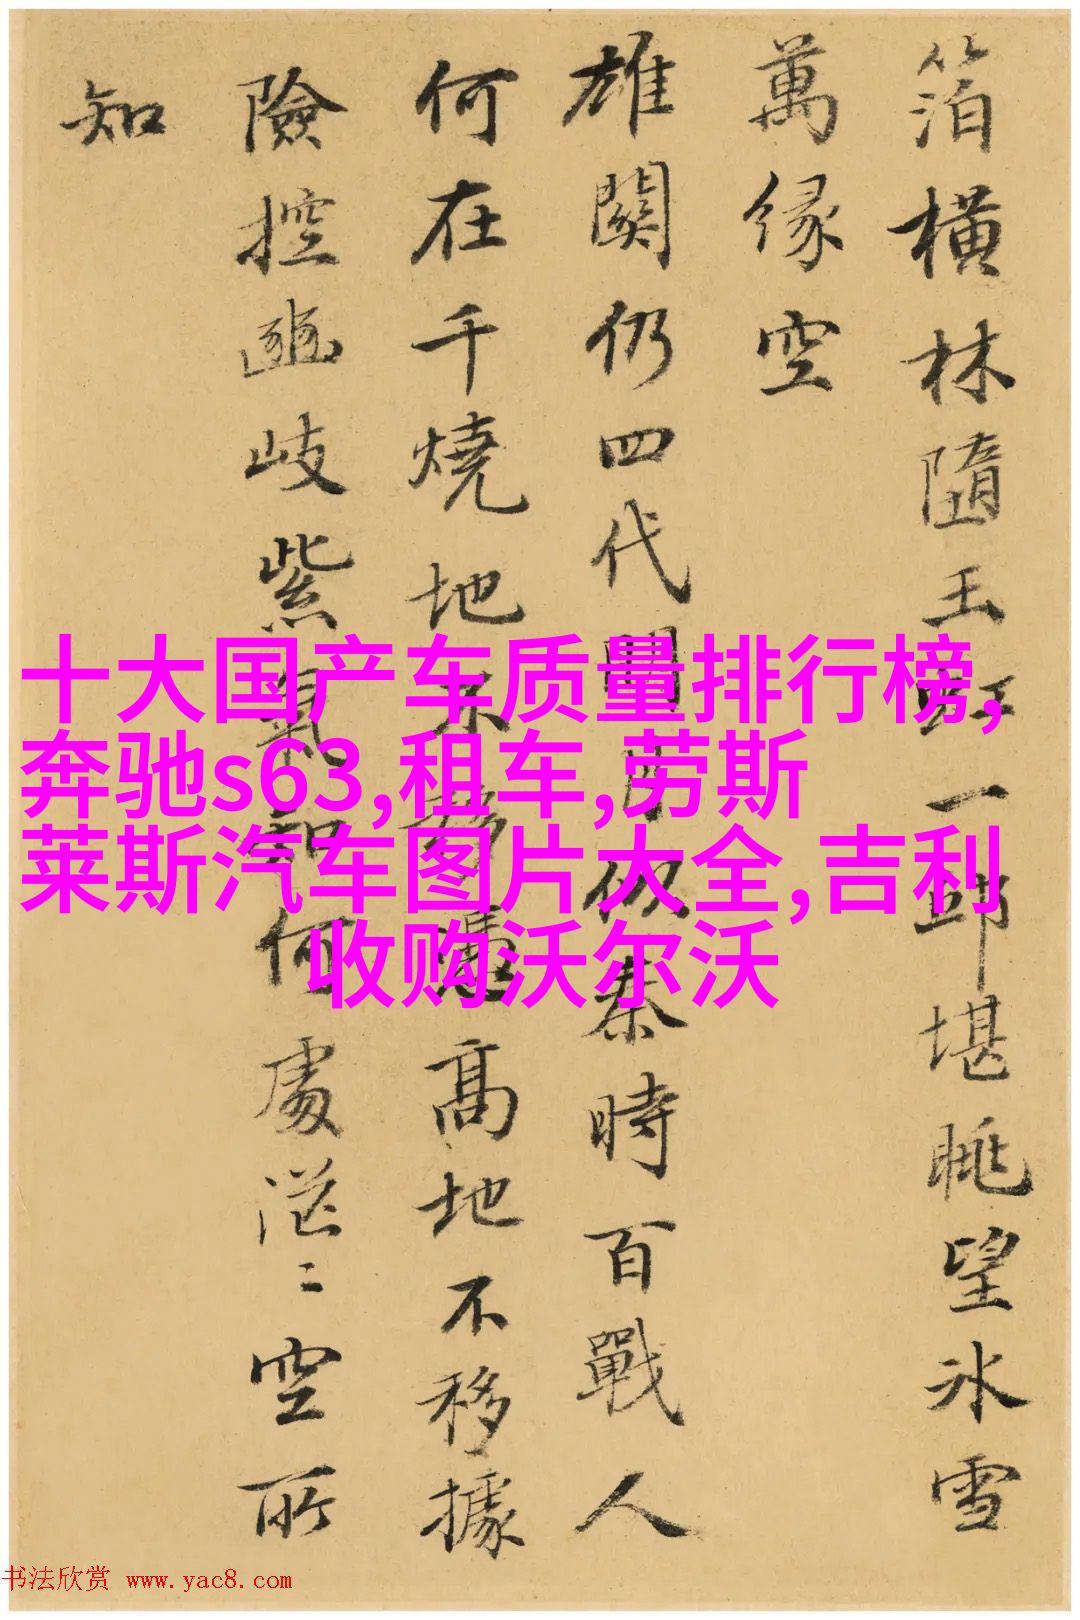 箔橫林隨玉虹一邱堪眺望冰雪
萬緣空
雄關仍四代月似秦時百戰人
何在千燒地不憑高地不移據
險控豳岐紫氣知何處茫〻空所
知
十大国产车质量排行榜,
奔驰s63,租车,劳斯
莱斯汽车图片大全,吉利
收购沃尔沃
书法欣赏 www.yac8.com